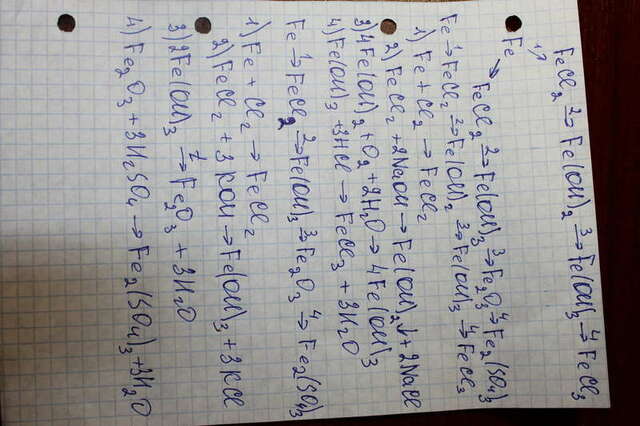 FeCl₂ ²→ Fe(OH)₂ ³→ Fe(OH)₃ ⁴→ FeCl₃
¹↗
Fe
↘
FeCl₂ ²→ Fe(OH)₃ ³→ Fe₂O₃ ⁴→ Fe₂(SO₄)₃
Fe ¹→ FeCl₂ ²→ Fe(OH)₂ ³→ Fe(OH)₃ ⁴→ FeCl₃
1) Fe + Cl₂ → FeCl₂
2) FeCl₂ + 2NaOH → Fe(OH)₂↓ + 2NaCl
3) 4Fe(OH)₂ + O₂ + 2H₂O → 4Fe(OH)₃
4) Fe(OH)₃ + 3HCl → FeCl₃ + 3H₂O
Fe ¹→ FeCl₂ ²→ Fe(OH)₃ ³→ Fe₂O₃ ⁴→ Fe₂(SO₄)₃
1) Fe + Cl₂ → FeCl₂
2) FeCl₂ + 3KOH → Fe(OH)₃ + 3KCl
3) 2Fe(OH)₃ t→ Fe₂O₃ + 3H₂O
4) Fe₂O₃ + 3H₂SO₄ → Fe₂(SO₄)₃ + 3H₂O